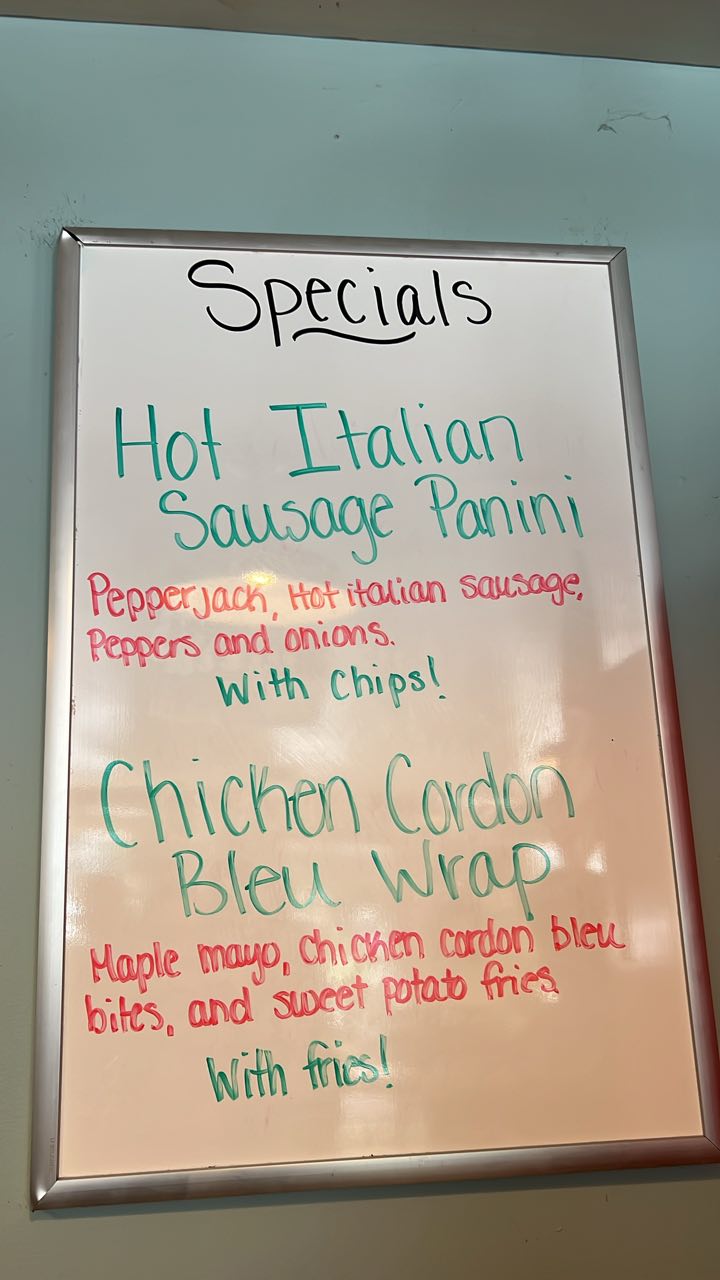 Specials
Hot Italian
Sausage Panini
Pepperjack, Hot italian sausage,
Peppers and onions.
With Chips!
Chicken Cordon
Bleu Wrap
Maple mayo, Chicken cordon bleu
bites, and sweet potato fries
With fries!